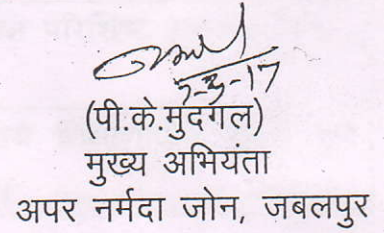 7-3-17
(पी.के.मुदगल)
मुख्य अभियंता
अपर नर्मदा जोन, जबलपुर